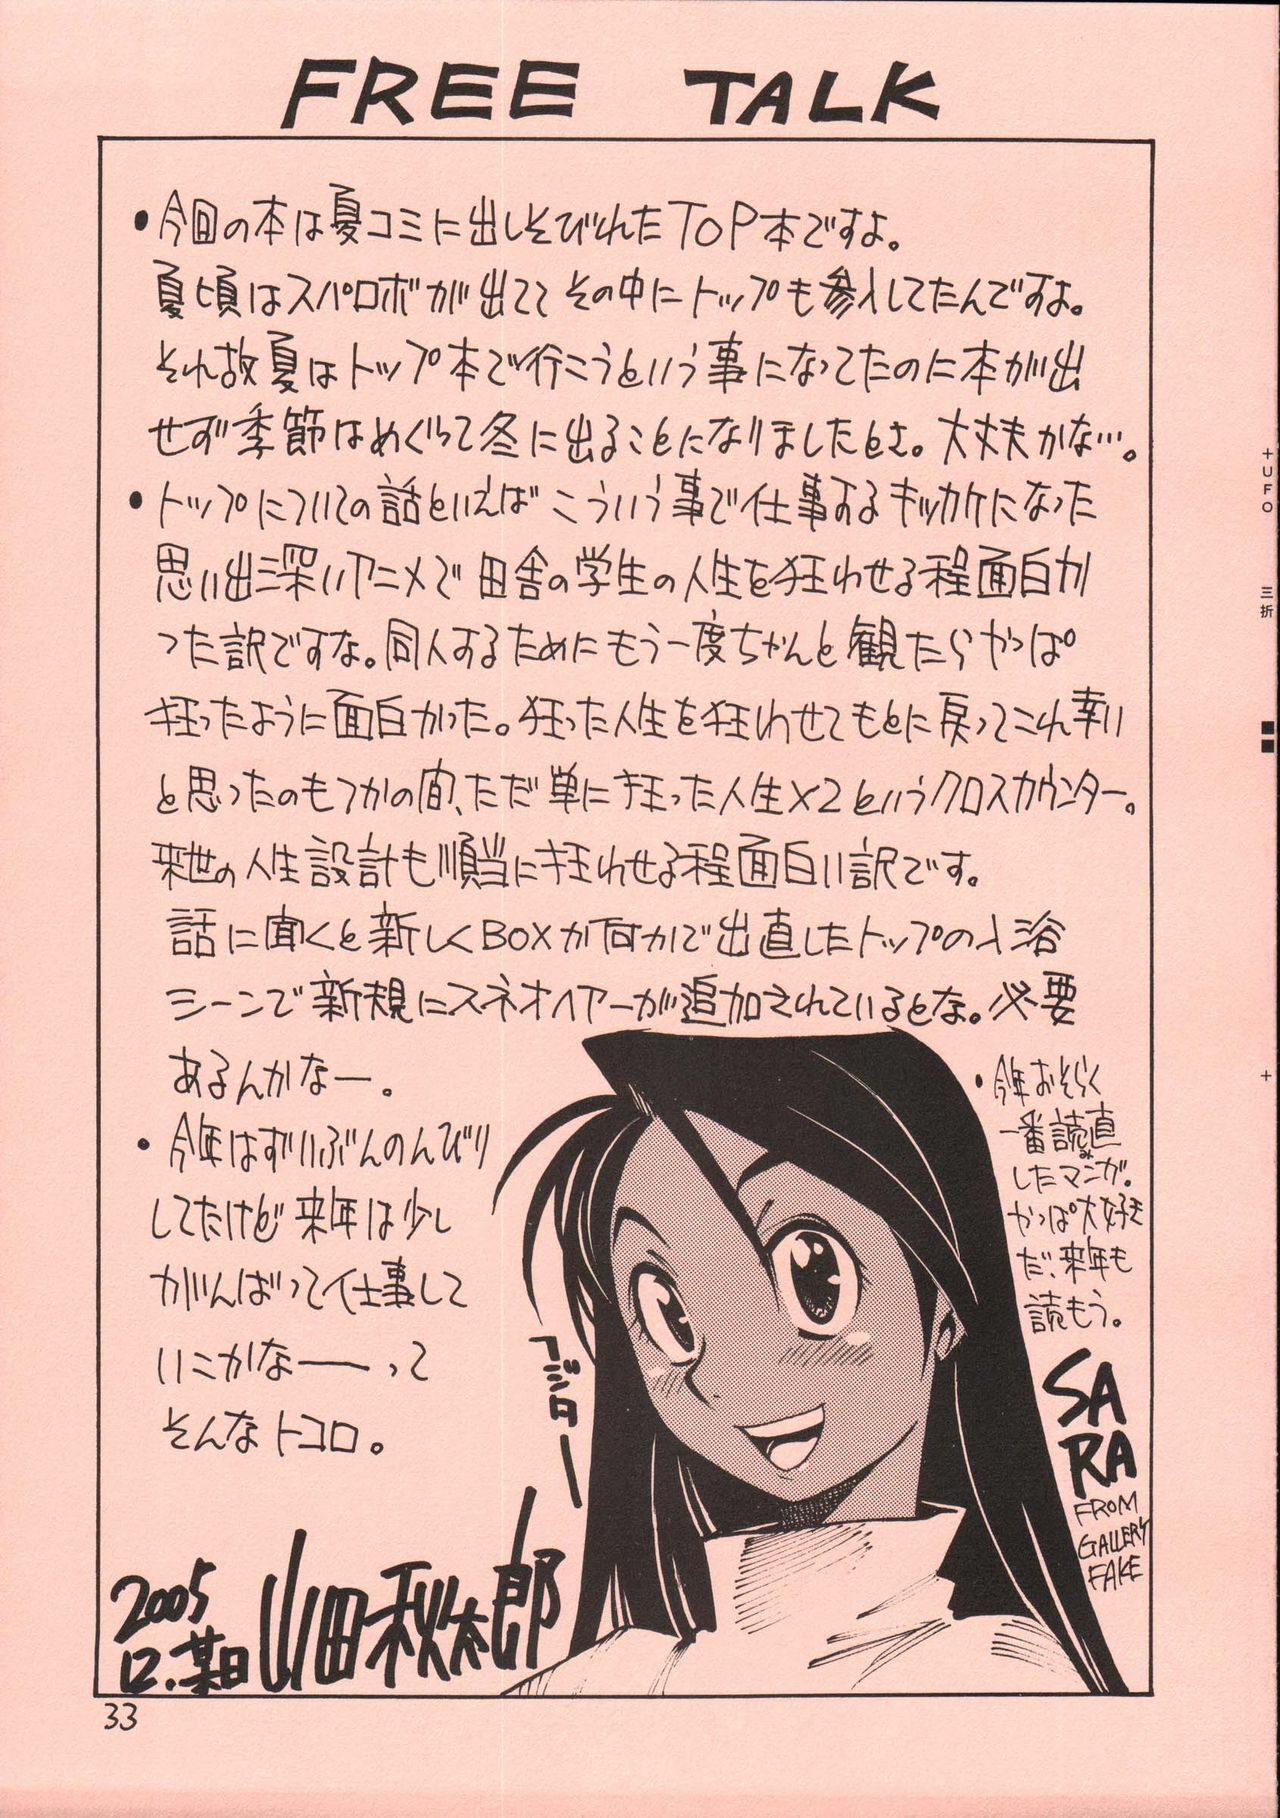 FREE TALK
・今回の本は夏コミに出しそびれたTOP本ですよ。
夏頃はスパロボが出ててその中にトップも参入してたんですよ。
それ故夏はトップ本で行こうという事になってたのに本が出
せず季節はめぐって冬に出ることになりましたとさ。大丈夫かな…。
・トップについての話といえばこういう事で仕事するキッカケになった
思い出深いアニメで田舎の学生の人生を狂わせる程面白か
った訳ですな。同人するためにもう一度ちゃんと観たらやっぱ
狂ったように面白かった。狂った人生を狂わせてもとに戻ってこれ幸い
と思ったのもつかの間、ただ単に狂った人生×2というクロスカウンター。
来世の人生設計も順当に狂わせる程面白い訳です。
話に聞くと新しくBOXか何かで出直したトップの入浴
シーンで新規にスネオヘアーが追加されているとな。必要
あるんかなー。
・今年はずいぶんのんびり
してたけど来年は少し
がんばって仕事して
いこかなーーって
そんなトコロ。
・今年おそらく
一番読み直
したマンガ。
やっぱ大好き
だ、来年も
読もう。
フジター
SA
RA
FROM
GALLERY
FAKE
2005
12.某日
山田秋太郎
33
+UFO 三折
+